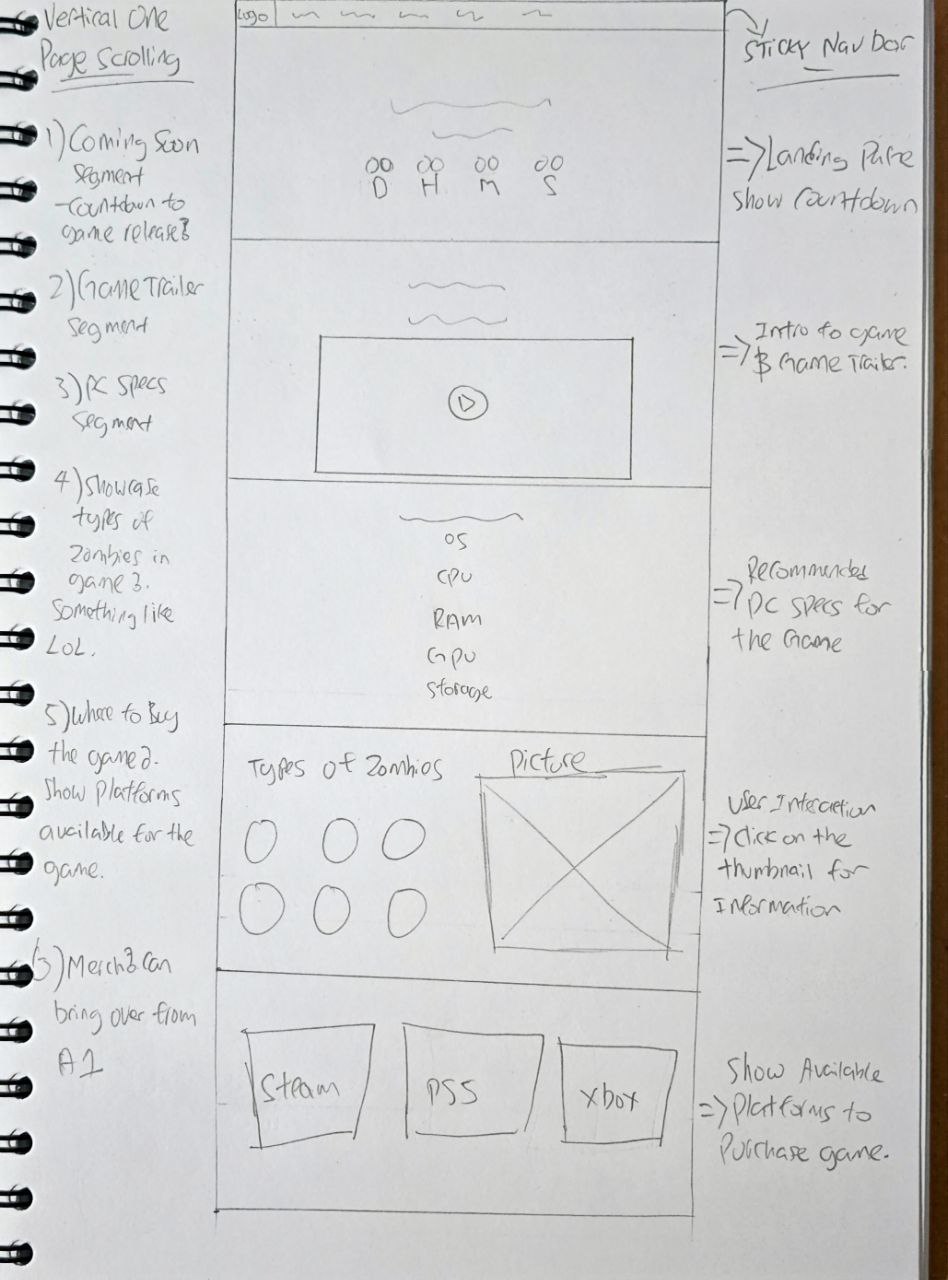 Vertical One
Page Scrolling
1) Coming Soon
segment
- Countdown to
game release?
2) Game Trailer
segment
3) PC Specs
segment
4) Showcase
types of
Zombies in
game?.
Something like
LoL.
5) Where to Buy
the game?.
Show platforms
available for the
game.
6) Merch? Can
bring over from
A1
Logo
00 00 00 00
D H M S
OS
CPU
RAM
GPU
Storage
Types of Zombies
Picture
Steam
PS5
Xbox
Sticky Nav bar
=> Landing Page
show Countdown
=> Intro to game
& Game Trailer.
=> Recommended
PC Specs for
the Game
User Interaction
=> Click on the
thumbnail for
Information
Show Available
=> Platforms to
Purchase game.